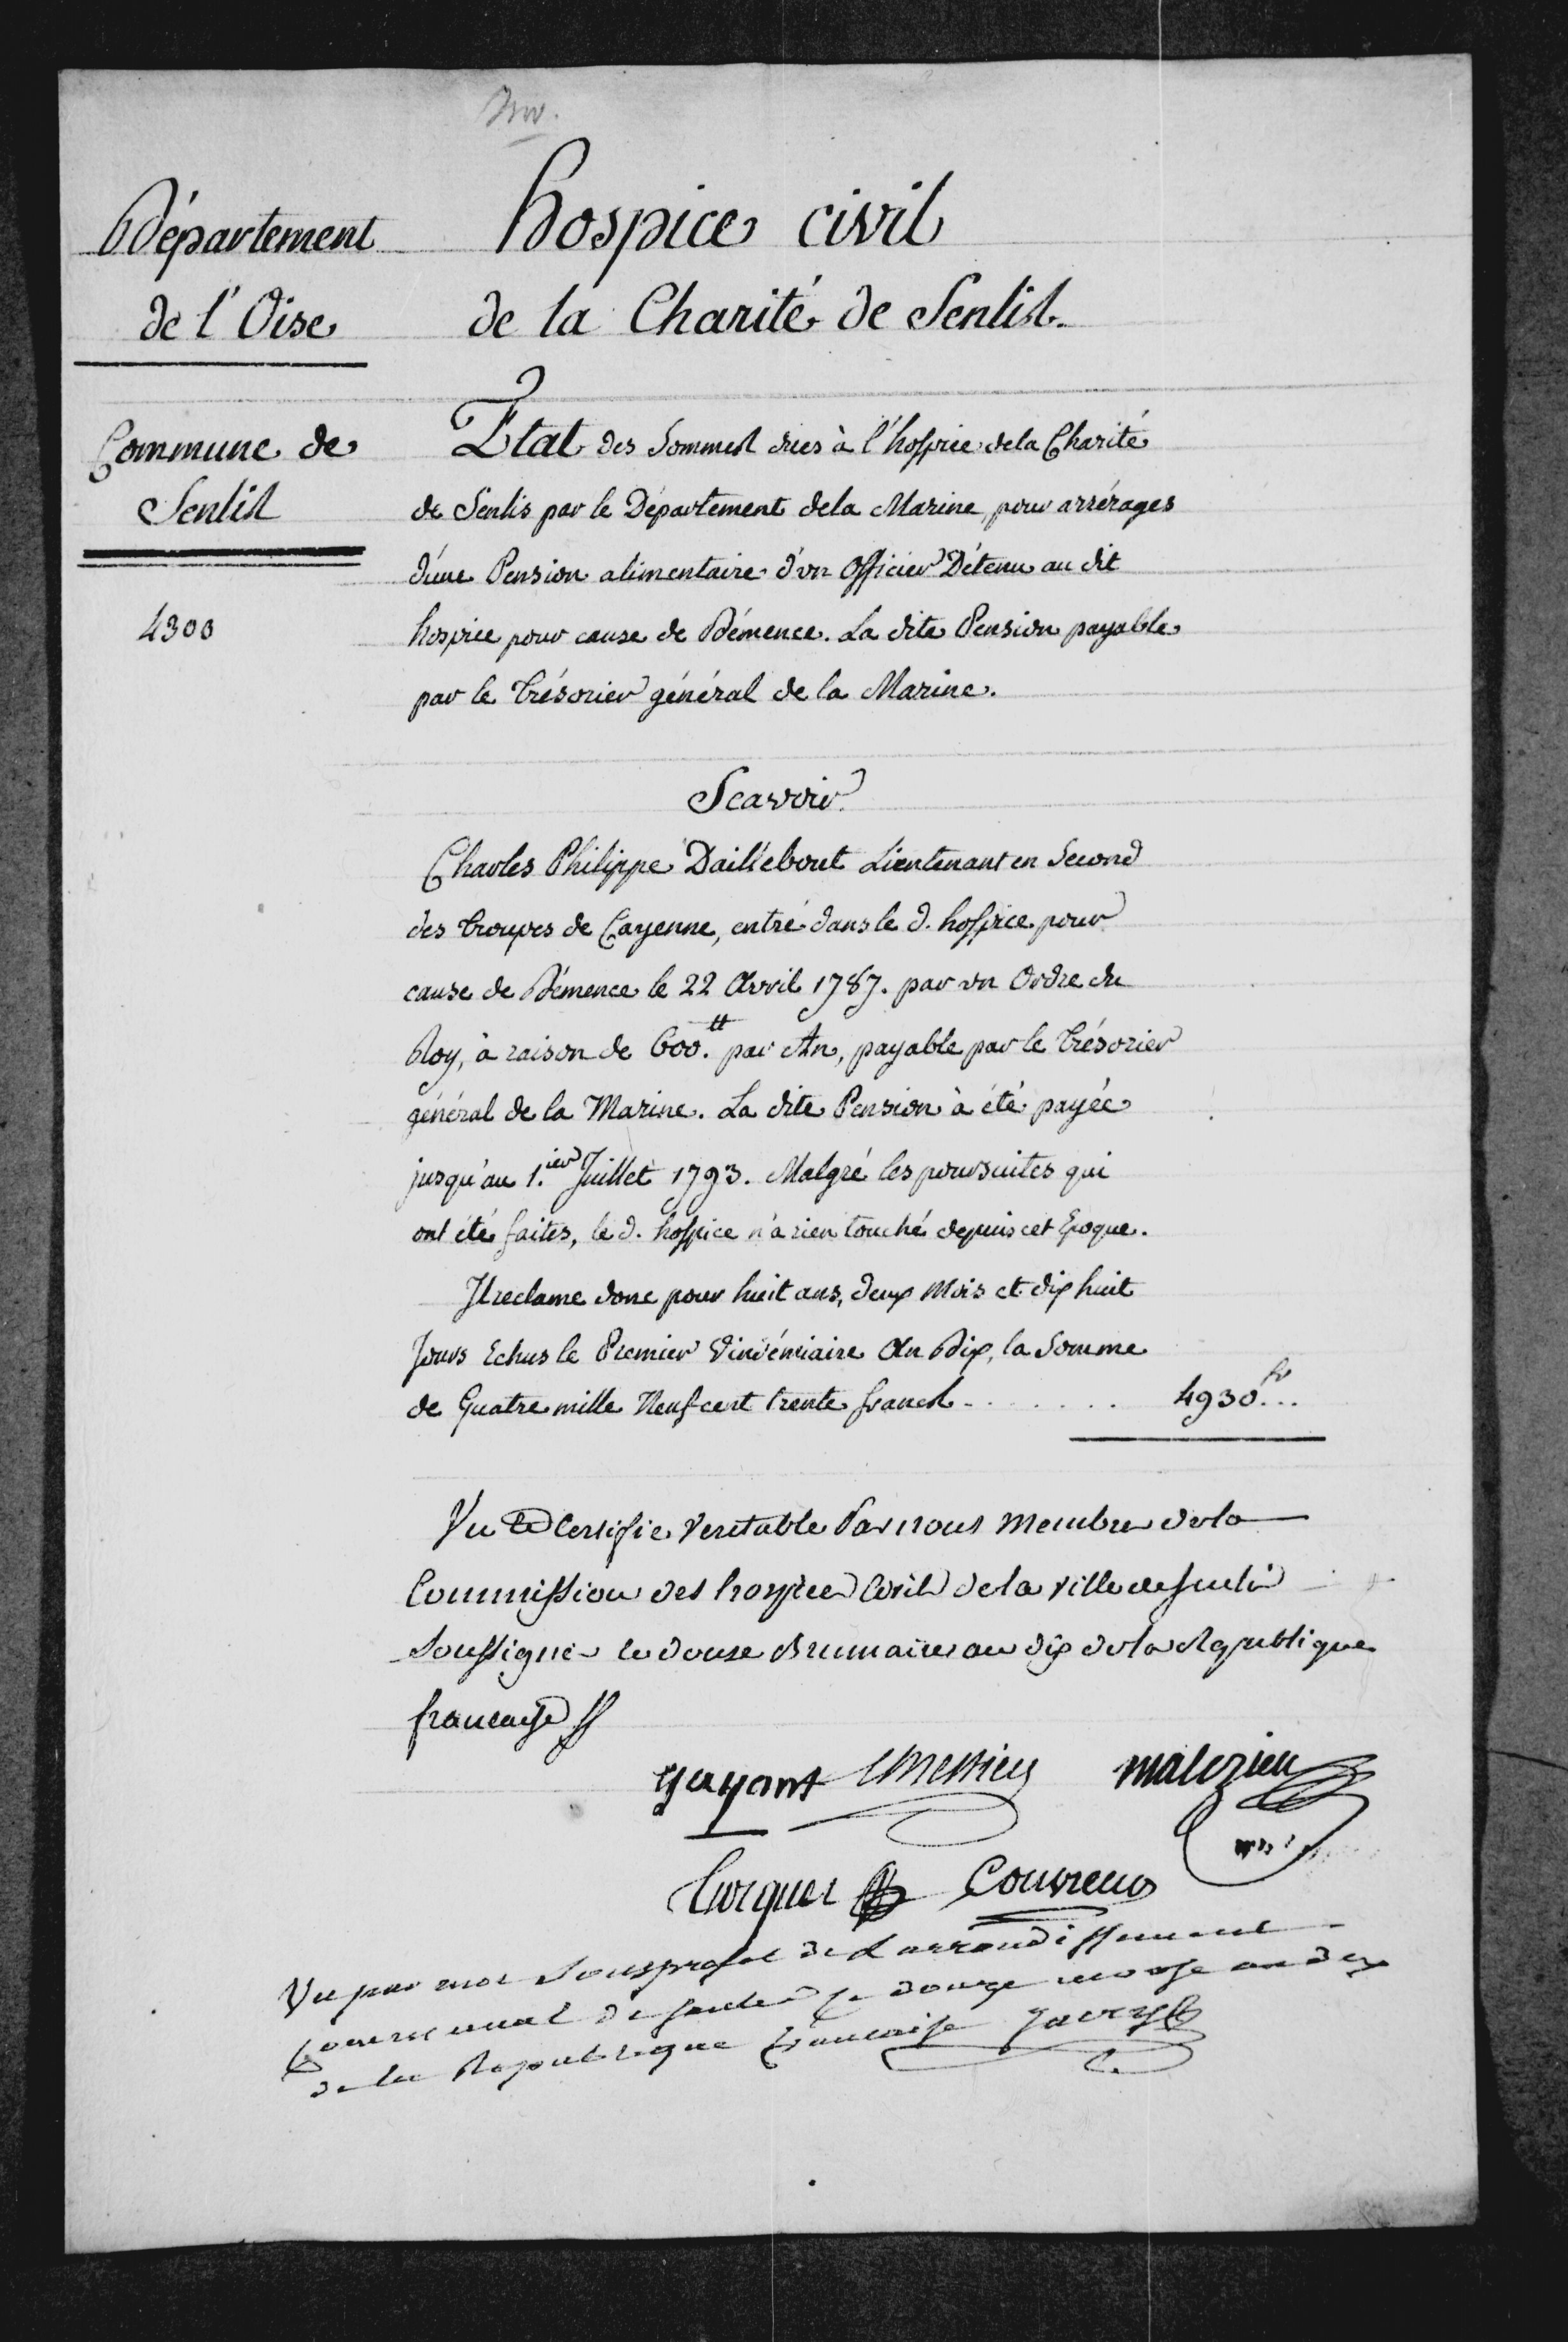 Département
de l'Oise
Commune de
Senlis
4300
hospice civil
de la Charité de Senlis.
Etat des Sommes dues à l'hospice de la Charité
de Senlis par le Département de la Marine, pour arrérages
d'une Pension alimentaire d'un Officier Détenu au dit
hospice pour cause de Démence. La dite Pension payable
par le Trésorier général de la Marine.
Scavoir
Charles Philippe Daillebout Lieutenant en Second
des troupes de Cayenne, entré dans le d. hospice pour
cause de Démence le 22 Avril 1787. par un Ordre du
Roy, à raison de 600.tt par An, payable par le Trésorier
général de la Marine. La dite Pension à été payée
jusqu'au 1.ier Juillet 1793. Malgré les poursuites qui
ont été faites, le d. hospice n'a rien touché depuis cet Epoque.
Il reclame donc pour huit ans, deux Mois et dix huit
Jours Echus le Premier Vindémiaire An Dix, la Somme
de Quatre mille Neuf cent trente francs - . . . . . . 4930.fr..
Vu et Certifié Veritable Par nous Membres de la
Commission des hospices Civils de la ville de Senlis
Soussignés le douze Brumaire an dix de la Republique
francaise
Gayant Messieu malezieu
Turquet Couvreur
Vu par moi Sousprefet de L'arrondissement
communal de Senlis le douze an dix
de la Republique francaise